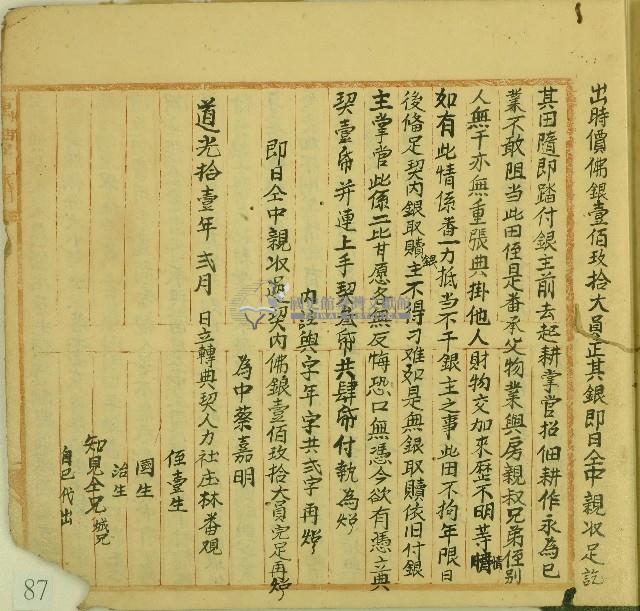 出時價佛銀壹佰玖拾大員正其銀即日仝中親收足訖
其田隨即踏付銀主前去起耕掌管招佃耕作永為己
業不敢阻当此田侄是番承父物業與房親叔兄弟侄別
人無干亦無重張典掛他人財物交加來歷不明等情
如有此情係番一力抵当不干銀主之事此田不拘年限日
後俻足契内銀取贖銀主不得刁难如是無銀取贖依旧付銀
主掌管此係二比甘愿各無反悔恐口無憑今欲有憑立典
契壹帋并連上手契叁帋共肆帋付執為炤
内註與字年字共弍字再炤
即日仝中親收過契内佛銀壹佰玖拾大員完足再炤
為中蔡嘉明
道光拾壹年弍月 日立轉典契人力社庄林番観
侄臺生
國生
治生
知見仝兄城兄
自己代出
87
國史館臺灣文獻館